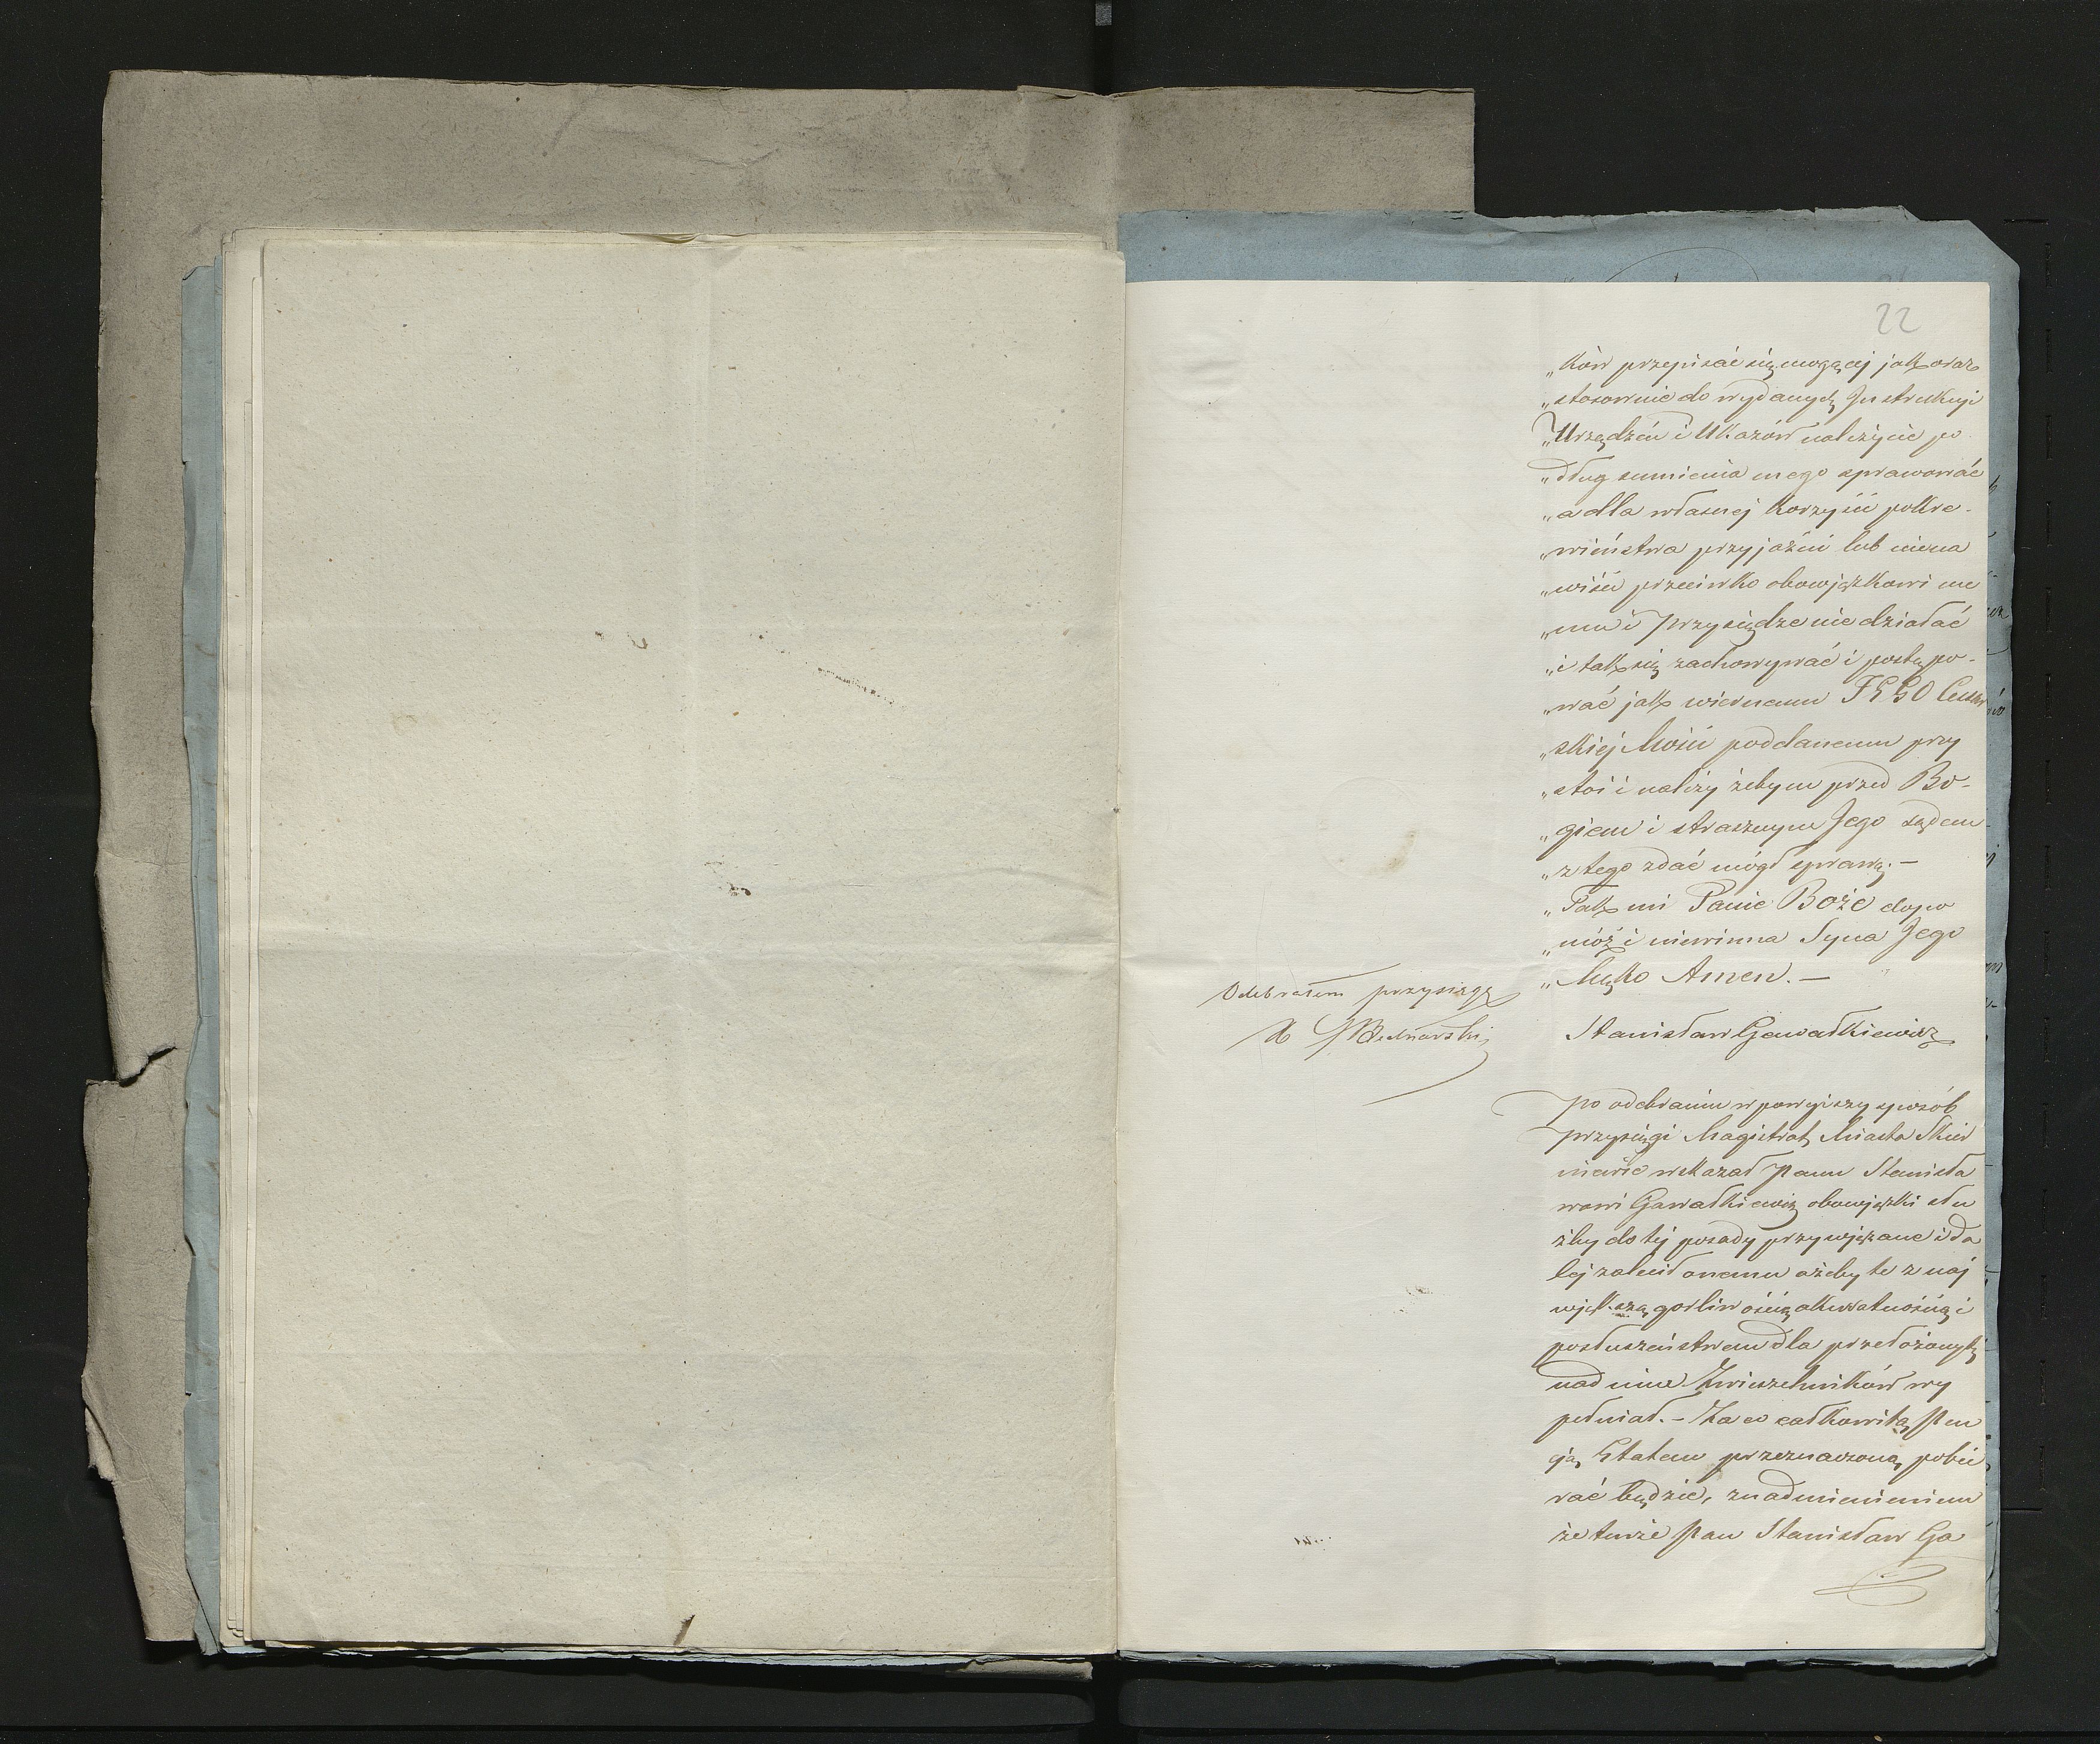 22
„ków przepisać się mogącej jak oraz
„stosownie do wydanych Instrukcyi
„Urządzeń i Ukazów należycie po
„dług sumienia mego sprawować
„a dla własnej korzyści pokre-
„wieństwa przyjaźni lub niena
„wiści przeciwko obowiązkowi me
„mu i Przysiędze nie działać
„i tak się zachowywać i postępo-
„wać jak wiernemu JEGO Cesar
„skiej Mości poddanemu przy
„stoi i należy żebym przed Bo-
„giem i strasznym Jego sądem
„z tego zdać mógł sprawę. —
„Tak mi Panie Boże dopo
„móż i niewinna Syna Jego
„Męko Amen. —
Odebrałem przysięgę
X Bednarski
Stanisław Gawałkiewicz
Po odebraniu w powyższy sposób
przysięgi Magistrat Miasta Skier
niewic wskazał Panu Stanisła
wowi Gawałkiewicz obowiązki słu
żby do tej posady przywiązane i da
lej zalecił onemu ażeby te z naj
większą gorliwością akuratnością i
posłuszeństwem dla przełożonych
nad nim Zwierzchników wy
pełniał. — Za co całkowitą Pen
cją Etatem przeznaczoną pobie
rać będzie, z nadmienieniem
że tenże Pan Stanisław Ga